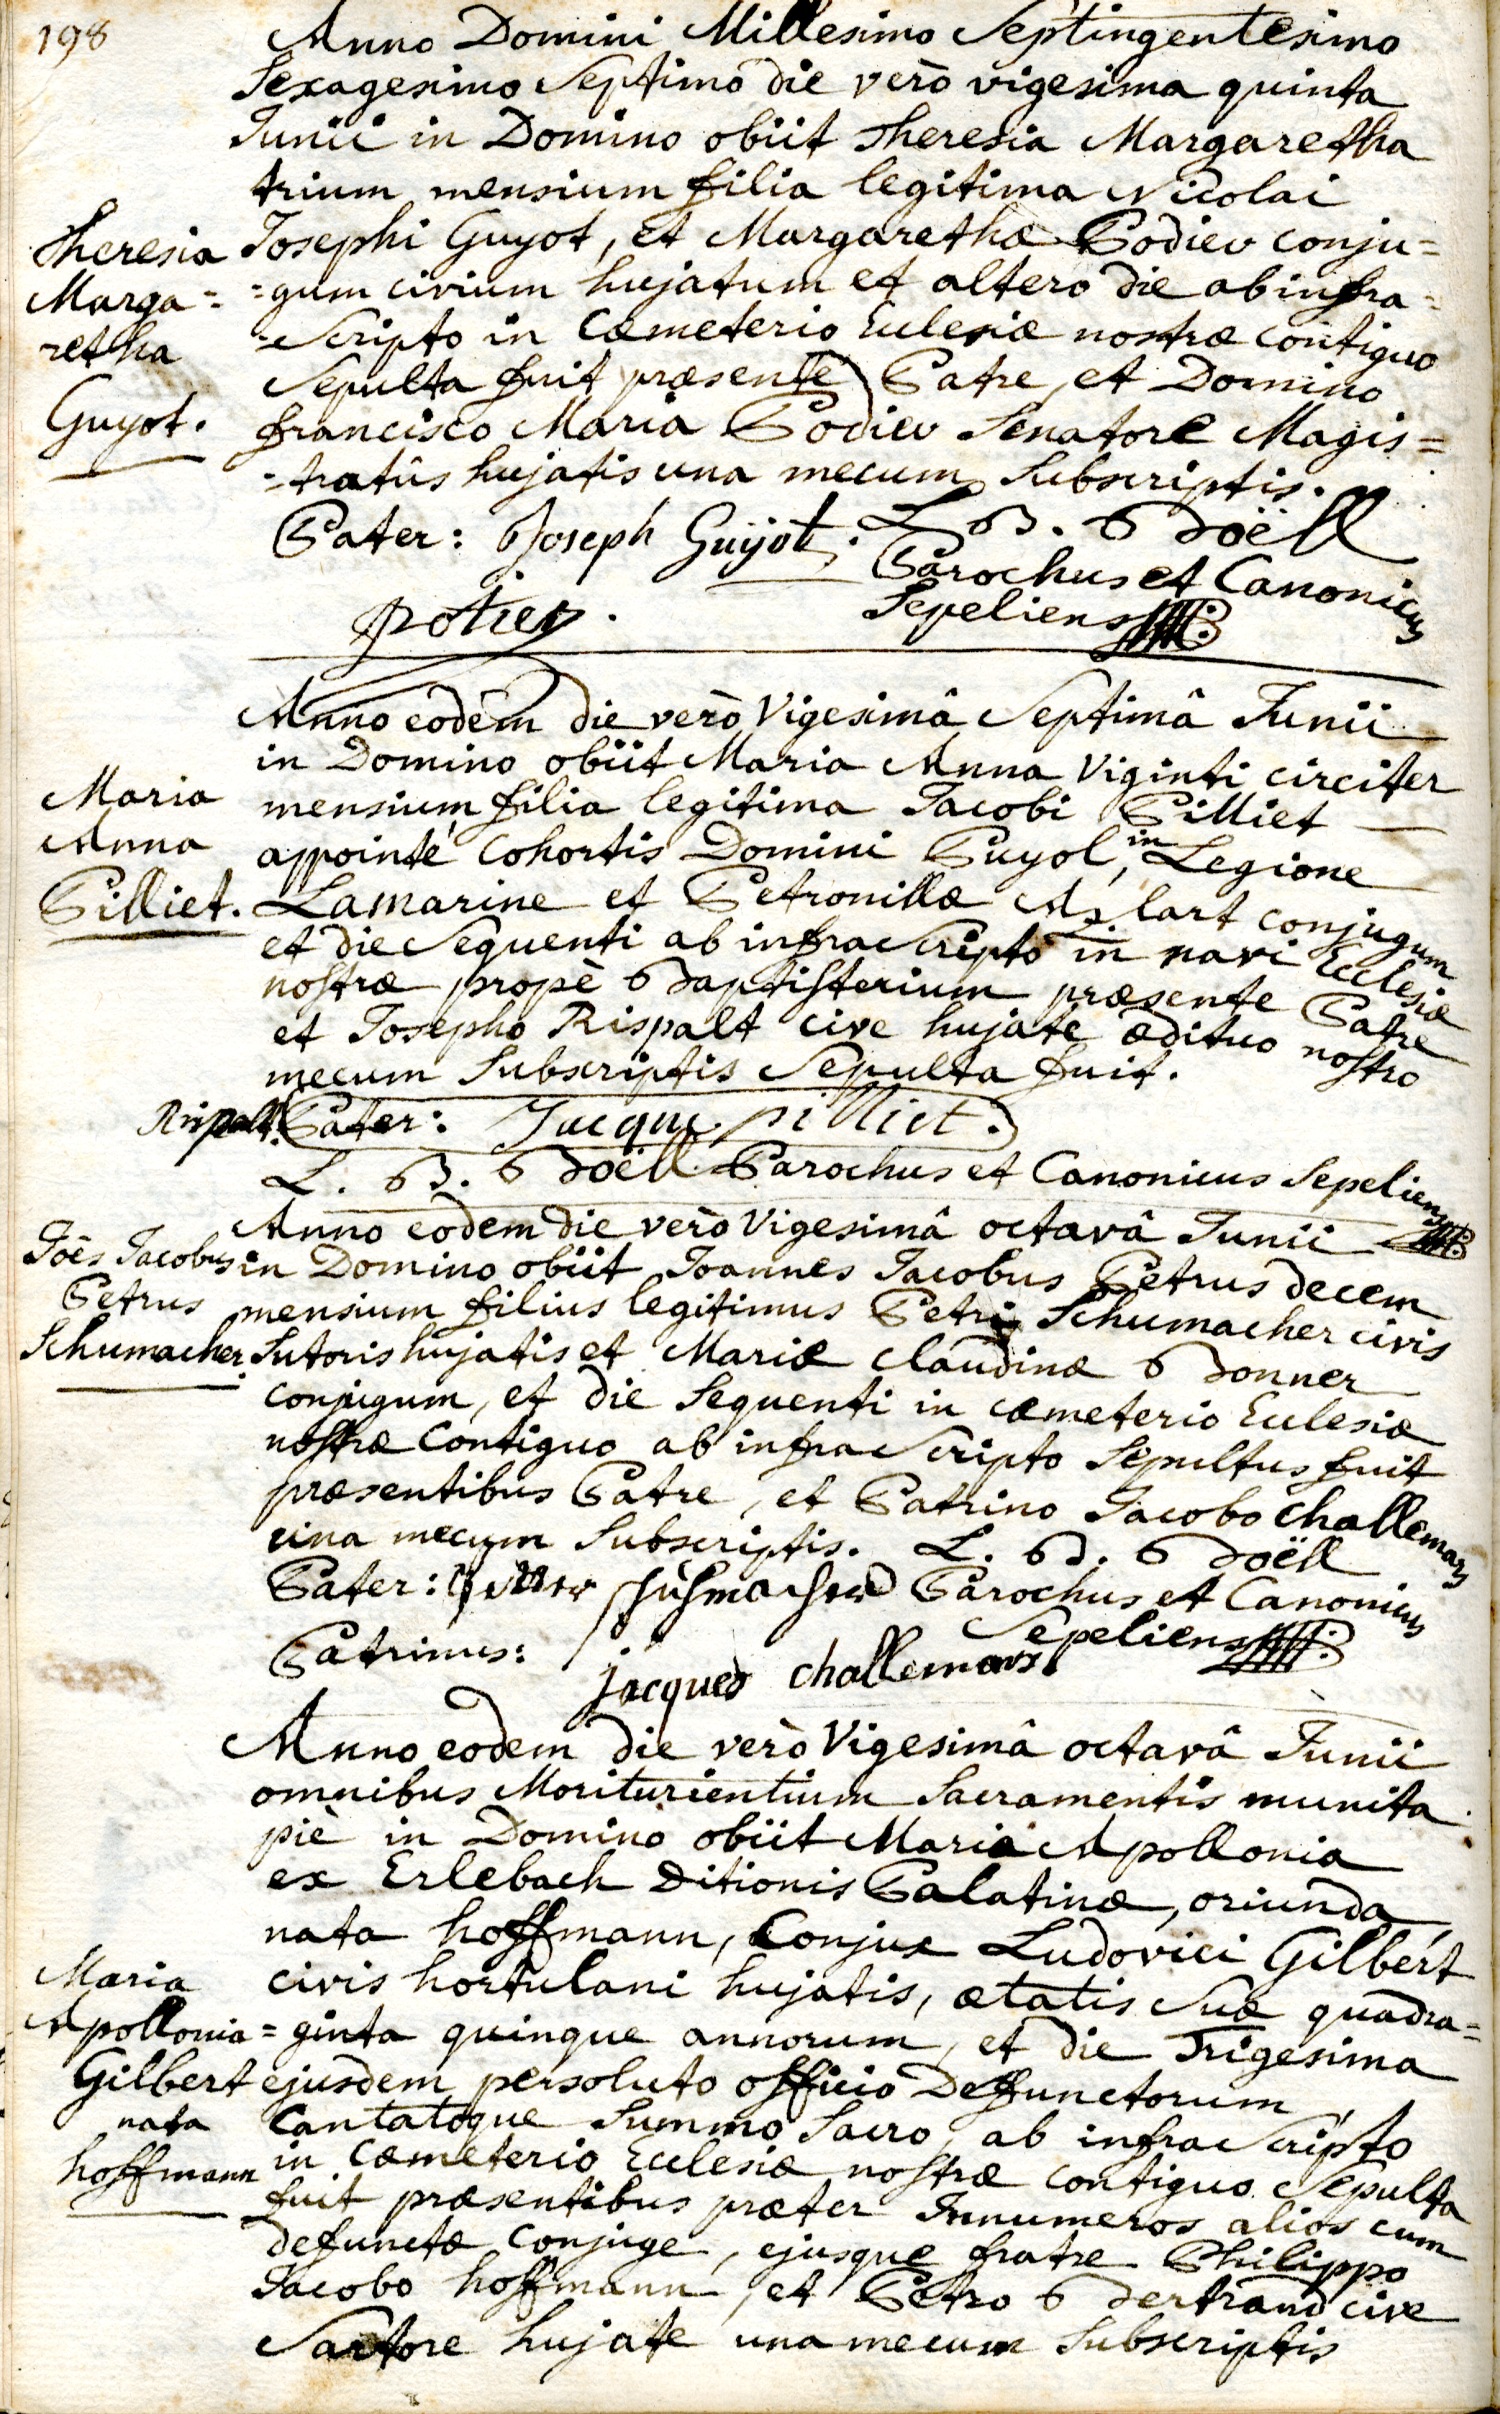 198
Anno Domini Millesimo Septingentesimo
Sexagesimo Septimo die verò vigesima quinta
Junii in Domino obiit Theresia Margaretha
trium mensium filia legitima Nicolai
Theresia
Marga=
retha
Guyot.
Josephi Guyot, et Margarethæ Podiev conju=
=gum civium hujatum et altero die ab infra=
=Scripto in Cæmeterio Ecclesiæ nostræ contiguo
Sepulta fuit præsente Patre, et Domino
francisco Maria Podiev Senatore Magis=
=tratûs hujatis una mecum Subscriptis.
Pater: Joseph Guÿot. L. B. Boëll
Parochus et Canonicus
Sepeliens
potier.
Anno eodem die verò Vigesimâ Septimâ Junii
in Domino obiit Maria Anna Viginti circiter
Maria
Anna
Pilliet.
mensium filia legitima Jacobi Pilliet
appointé Cohortis Domini Puyol, in Legione
Lamarine et Petronillæ Aslart conjugum
et die Sequenti ab infra Scripto in navi Ecclesiæ
nostræ propè Baptisterium præsente Patre
et Josepho Rispalt cive hujate ædituo nostro
mecum Subscriptis Sepulta fuit.
Rispalt. Pater: Jacque pilliet.
L. B. Boëll Parochus et Canonicus Sepeliens
Anno eodem die verò Vigesimâ octavâ Junii
Joês Jacobus
Petrus
Schumacher.
in Domino obiit Joannes Jacobus Petrus decem
mensium filius legitimus Petri Schumacher civis
Sutoris hujatis et Mariæ Claudinæ Bonner
conjugum, et die Sequenti in cæmeterio Ecclesiæ
nostræ Contiguo ab infra Scripto Sepultus fuit
præsentibus Patre, et Patrino Jacobo Challemars
una mecum Subscriptis. L. B. Boëll
Pater: Schumacher Parochus et Canonicus
Sepeliens
Patrinus: jacques challemars
Anno eodem die verò Vigesimâ octavâ Junii
omnibus Moriturientium Sacramentis munita
piè in Domino obiit Maria Apollonia
ex Erlebach Ditionis Palatinæ, oriunda
nata hoffmann, Conjux Ludovici Gilbert
Maria
Apollonia
Gilbert
nata
hoffmann
civis hortulani hujatis, ætatis Suæ quadra=
=ginta quinque annorum, et die Trigesima
ejusdem persoluto officio Deffunctorum
Cantatoque Summo Sacro, ab infra Scripto
in Cæmeterio Ecclesiæ nostræ contiguo Sepulta
fuit præsentibus præter Innumeros alios cum
defunctæ Conjuge, ejusque fratre Philippo
Jacobo hoffmann, et Petro Bertrand cive
Sartore hujate una mecum Subscriptis